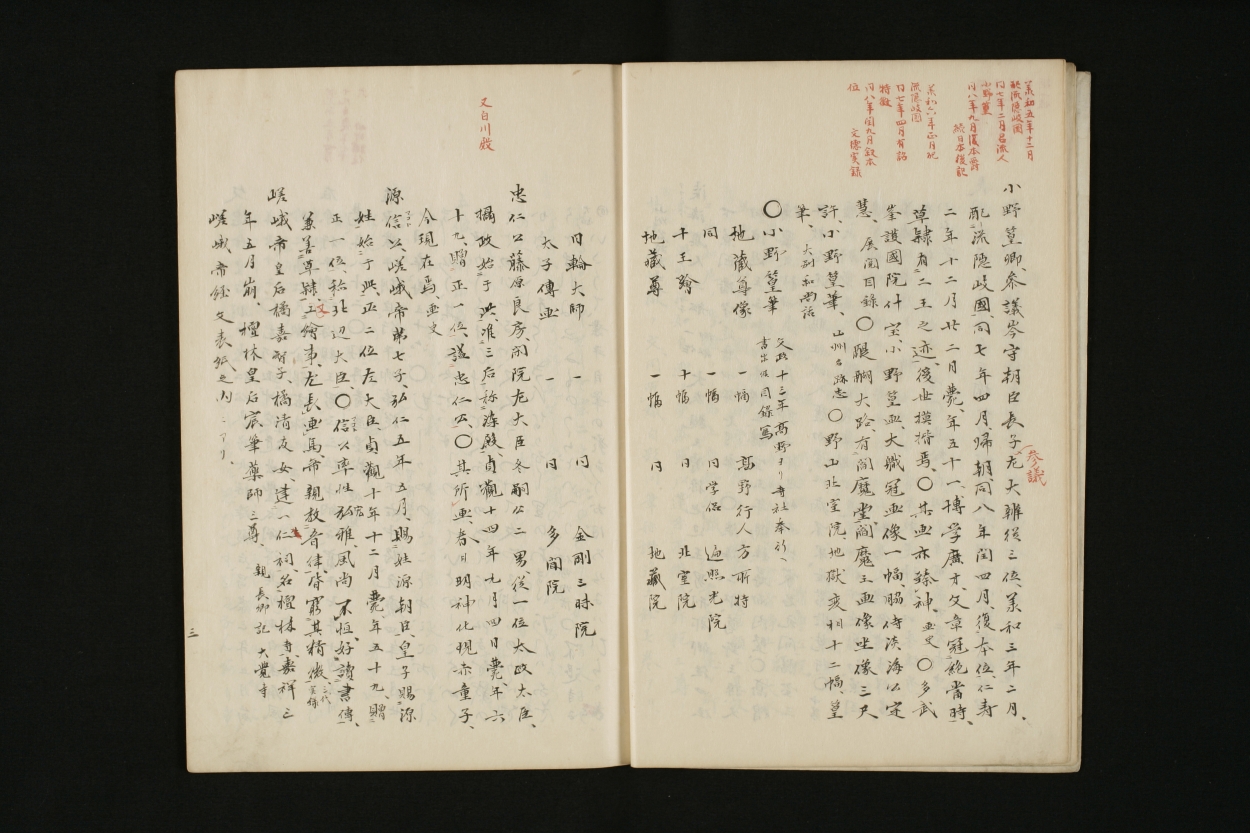 承和五年十二月
配流隠岐國
同七年二月召流人
小野篁
同八年九月復本爵
續日本後記
承和六年正月配
流隠岐國
同七年四月有詔
特徴
同八年閏九月叙本
位
文德実録
参議
小野篁卿、参議岑守朝臣長子、左大辨従三位、承和三年二月、
配流隠岐國同七年四月、帰朝、同八年閏四月、復本位、仁寿
二年十二月廿二月薨、年五十一、博学広才文章冠絶當時、
草隷有二王之迹後世摸揩焉、〇其画亦臻神、画史〇多武
峯護國院什宝、小野篁画、大織冠画像一幅、脇侍淡海公定
慧、展閲目録〇醍醐大路、有閻魔堂、閻魔王画像坐像三尺
許、小野篁筆、山州名跡志〇野山北室院、地獄変相十二幅、篁
筆、大列和尚話
〇小野篁筆 文政十三年高野ヨリ寺社奉行ヘ書出候目録写
地蔵尊像 一幅 高野行人方所持
同 一幅 同学侶 遍照光院
十王繪 十幅 同 北室院
地蔵尊 一幅 同 地藏院
日輪大師 一 同 金剛三昧院
太子傳画 一 同 多聞院
又白川殿
忠仁公藤原良房、閑院左大臣冬嗣公二男、従一位太政大臣、
攝政始于此、准三后称染殿、貞観十四年九月四日薨、年六
十九、贈正一位、謚忠仁公、〇其所画、春日明神化現赤童子、
今現在焉、画史
源信公、嵯峨帝第七子、弘仁五年五月、賜姓源朝臣、皇子賜源
姓、始于此、正二位左大臣、貞観十年十二月薨、年五十九、贈
正一位、称北辺大臣、〇信公率性弘雅、風尚不恒、好讀書傳、
兼善草隷、工繪事、左長画馬、帝親教音律、皆窮其精微、三代実録
嵯峨帝皇后橘嘉智子、橘清友女、建一仁祠、名檀林寺、嘉祥三
年五月崩、檀林皇后宸筆薬師三尊、親長卿記 大覚寺
嵯峨帝経文表紙之内ニアリ、
三